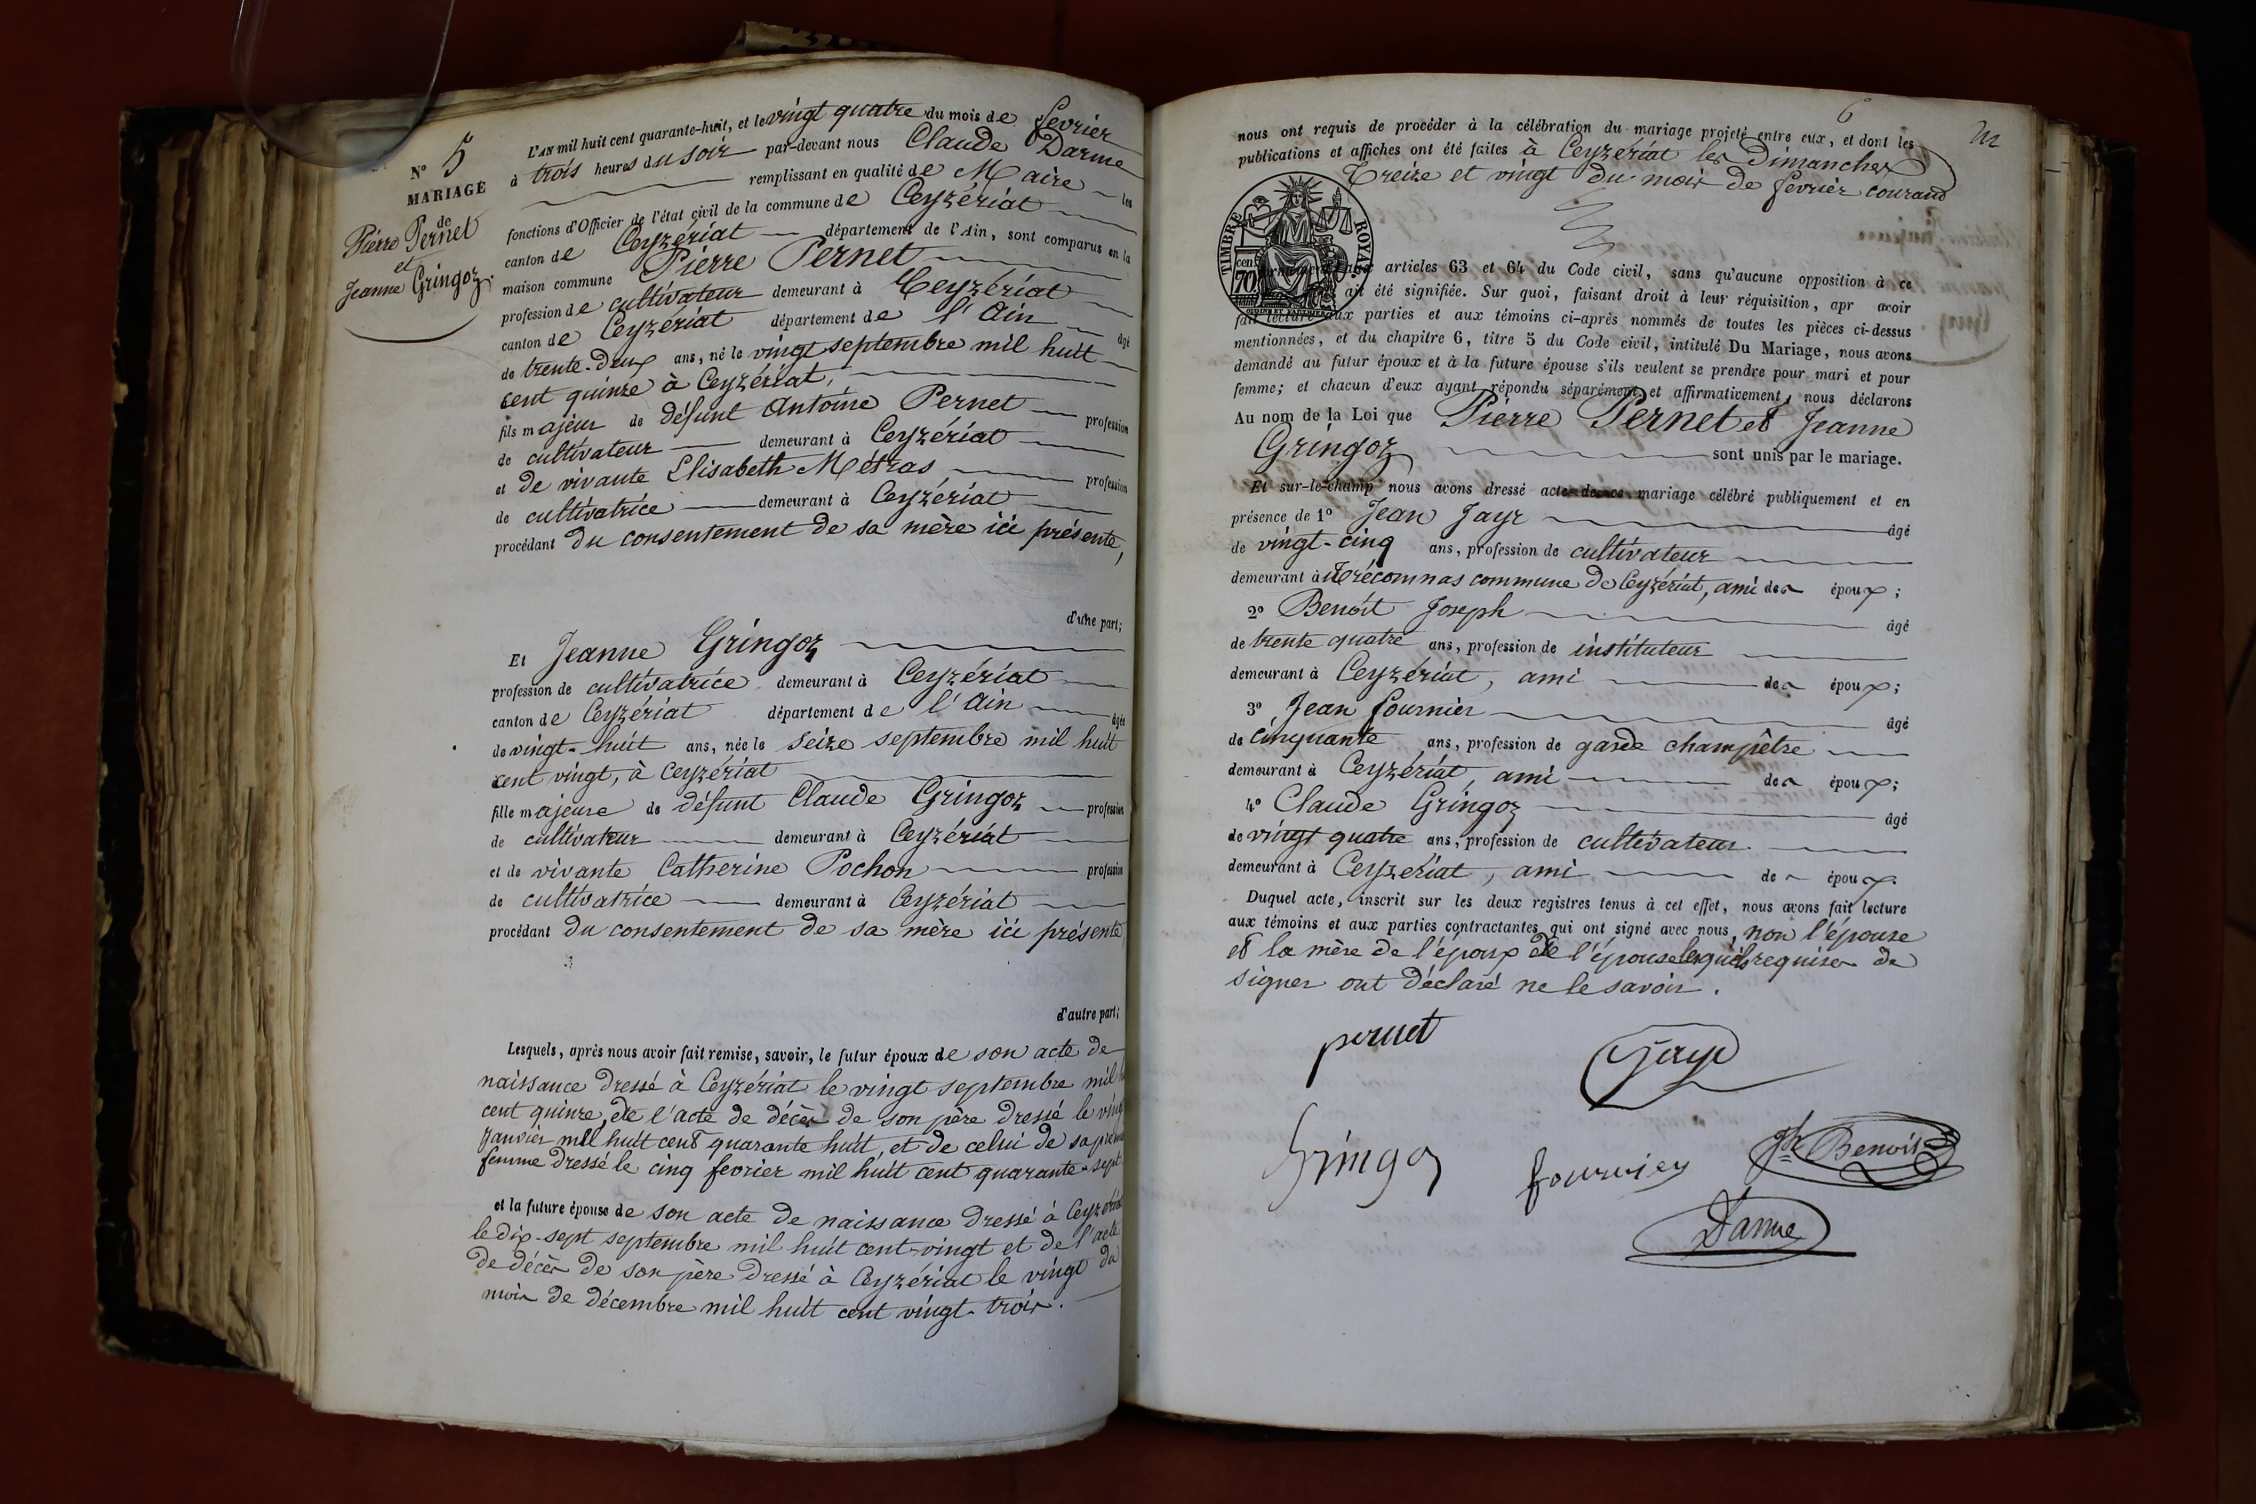 N° 5
MARIAGE
de
Pierre Pernet
et
Jeanne Gringoz.
L'AN mil huit cent quarante-huit, et le vingt quatre du mois de fevrier
à trois heures du soir par-devant nous Claude Darme
remplissant en qualité de Maire les
fonctions d'Officier de l'état civil de la commune de Ceyzériat
canton de Ceyzériat département de l'Ain, sont comparus en la
maison commune Pierre Pernet
profession de cultivateur demeurant à Ceyzériat
canton de Ceyzériat département de l'Ain âgé
de trente-deux ans, né le vingt septembre mil huit
cent quinze à Ceyzériat,
fils majeur de défunt Antoine Pernet profession
de cultivateur demeurant à Ceyzériat
et de vivante Elisabeth Métras profession
de cultivatrice demeurant à Ceyzériat
procédant du consentement de sa mère ici présente,
d'une part;
Et Jeanne Gringoz
profession de cultivatrice demeurant à Ceyzériat
canton de Ceyzériat département de l'Ain âgée
de vingt-huit ans, née le seize septembre mil huit
cent vingt, à Ceyzériat
fille majeure de défunt Claude Gringoz profession
de cultivateur demeurant à Ceyzériat
et de vivante Catherine Pochon profession
de cultivatrice demeurant à Ceyzériat
procédant du consentement de sa mère ici présente
d'autre part;
Lesquels, après nous avoir fait remise, savoir, le futur époux de son acte de
naissance dressé à Ceyzériat le vingt septembre mil
cent quinze, de l'acte de décès de son père dressé le vingt
janvier mil huit cent quarante huit, et de celui de sa
femme dressé le cinq fevrier mil huit cent quarante-sept
et la future épouse de son acte de naissance dressé à Ceyzériat
le dix-sept septembre mil huit cent-vingt et de l'acte
de décès de son père dressé à Ceyzériat le vingt du
mois de décembre mil huit cent vingt-trois.
6
nous ont requis de procéder à la célébration du mariage projeté entre eux, et dont les
publications et affiches ont été faites à Ceyzériat les Dimanches
Treize et vingt du mois de fevrier courant
TIMBRE ROYAL
cent
70
articles 63 et 64 du Code civil, sans qu'aucune opposition à ce
ait été signifiée. Sur quoi, faisant droit à leur réquisition, apr avoir
fait lecture aux parties et aux témoins ci-après nommés de toutes les pièces ci-dessus
mentionnées, et du chapitre 6, titre 5 du Code civil, intitulé Du Mariage, nous avons
demandé au futur époux et à la future épouse s'ils veulent se prendre pour mari et pour
femme; et chacun d'eux ayant répondu séparément et affirmativement, nous déclarons
Au nom de la Loi que Pierre Pernet et Jeanne
Gringoz sont unis par le mariage.
Et sur-le-champ nous avons dressé acte de ce mariage célébré publiquement et en
présence de 1° Jean Jayr âgé
de vingt-cinq ans, profession de cultivateur
demeurant à Trécomnas commune de Ceyzériat, ami des époux;
2° Benoît Joseph âgé
de trente quatre ans, profession de instituteur
demeurant à Ceyzériat, ami des époux;
3° Jean fournier âgé
de cinquante ans, profession de garde champêtre
demeurant à Ceyzériat, ami des époux;
4° Claude Gringoz âgé
de vingt quatre ans, profession de cultivateur.
demeurant à Ceyzériat, ami des époux.
Duquel acte, inscrit sur les deux registres tenus à cet effet, nous avons fait lecture
aux témoins et aux parties contractantes qui ont signé avec nous, non l'épouse
et la mère de l'époux de l'épouse lesquels requises de
signer ont déclaré ne le savoir.
pernet
Jayr
Gringoz
fournier
Jh Benoît
Darme